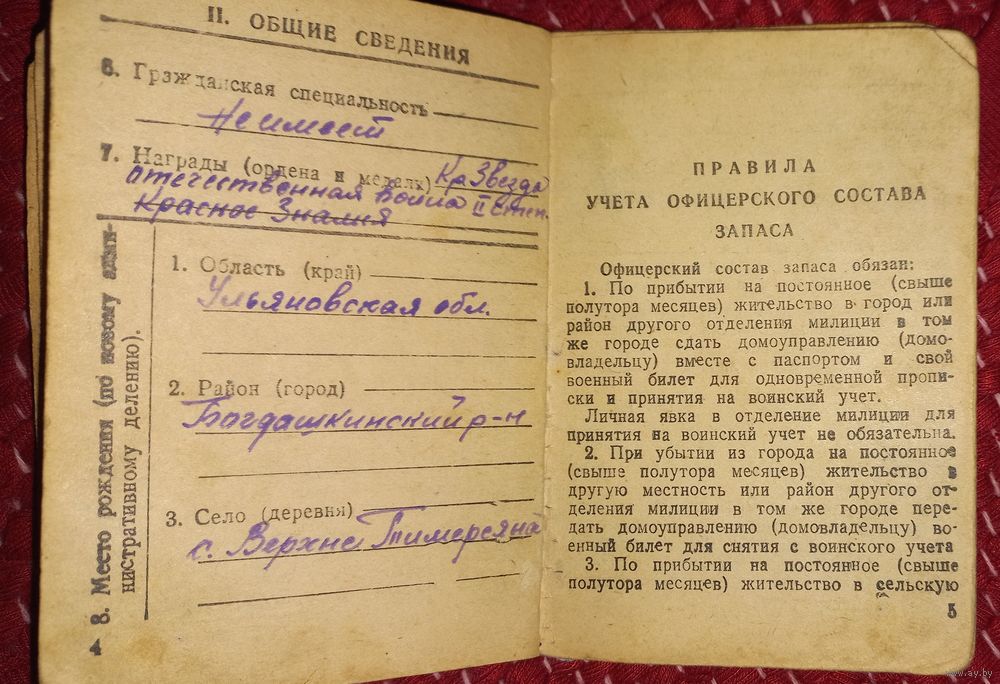 II. ОБЩИЕ СВЕДЕНИЯ
6. Гражданская специальность
Не имеет
7. Награды (ордена и медали) Кр Звезда
отечественная война II степ.
Красное Знамя
8. Место рождения (по новому адми-
нистративному делению).
1. Область (край)
Ульяновская обл.
2. Район (город)
Богдашкинский р-н
3. Село (деревня)
с. Верхне Тимерсяна
4
ПРАВИЛА
УЧЕТА ОФИЦЕРСКОГО СОСТАВА
ЗАПАСА
Офицерский состав запаса обязан:
1. По прибытии на постоянное (свыше
полутора месяцев) жительство в город или
район другого отделения милиции в том
же городе сдать домоуправлению (домо-
владельцу) вместе с паспортом и свой
военный билет для одновременной пропи-
ски и принятия на воинский учет.
Личная явка в отделение милиции для
принятия на воинский учет не обязательна.
2. При убытии из города на постоянное
(свыше полутора месяцев) жительство в
другую местность или район другого от-
деления милиции в том же городе пере-
дать домоуправлению (домовладельцу) во-
енный билет для снятия с воинского учета
3. По прибытии на постоянное (свыше
полутора месяцев) жительство в сельскую
5
www.ay.by